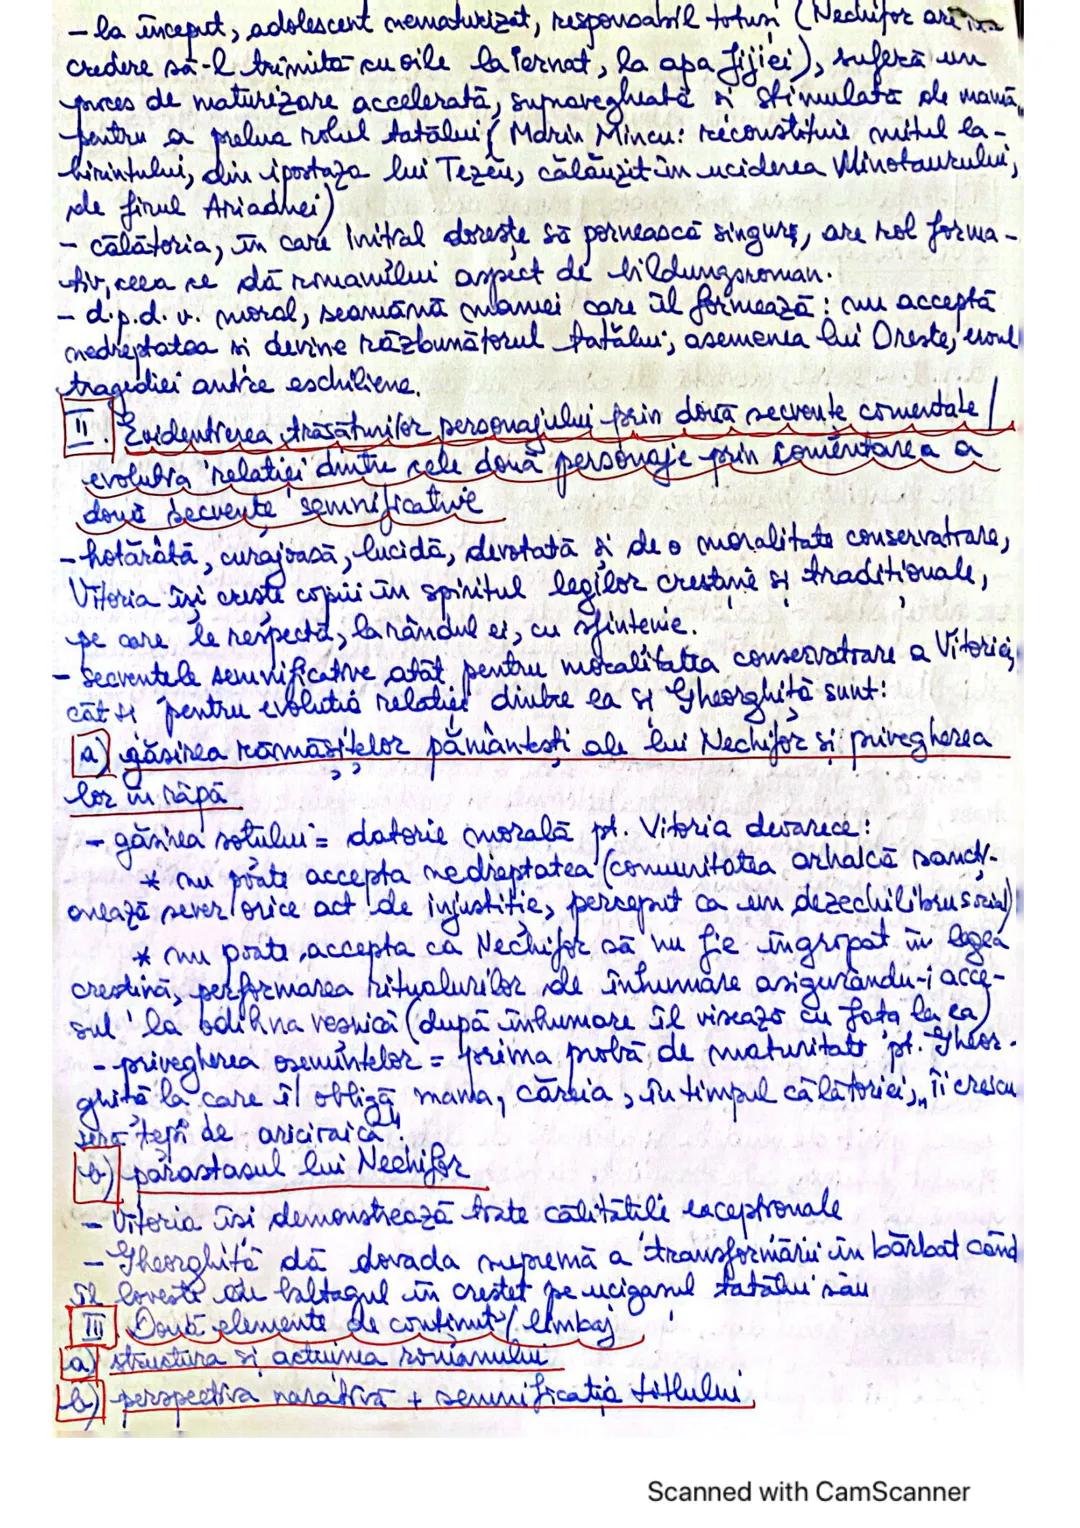 - la început, adolescent nematurizat, responsabil totuși (Nechifor are în-
credere să-l trimită cu oile la iernat, la apa Jijiei), suferă un
proces de maturizare accelerată, supravegheată și stimulată de mamă,
pentru a prelua rolul tatălui (Marin Mincu: reconstituie mitul la-
birintului, din ipostaza lui Tezeu, călăuzit în uciderea Minotaurului,
de firul Ariadnei)
- călătoria, în care inițial dorește să pornească singur, are rol forma-
tiv, ceea ce dă romanului aspect de bildungsroman.
- d.p.d.v. moral, seamănă mamei care îl formează: nu acceptă
nedreptatea și devine răzbunătorul tatălui, asemenea lui Oreste, eroul
tragediei antice eschiliene.
II. Evidențierea trăsăturilor personajului prin două secvențe comentate /
evoluția relației dintre cele două personaje prin comentarea a
două secvențe semnificative
- hotărâtă, curajoasă, lucidă, devotată și de o moralitate conservatoare,
Vitoria își crește copiii în spiritul legilor creștine și tradiționale,
pe care le respectă, la rândul ei, cu sfințenie.
- Secvențele semnificative atât pentru moralitatea conservatoare a Vitoriei,
cât și pentru evoluția relației dintre ea și Gheorghiță sunt:
a) găsirea rămășițelor pământești ale lui Nechifor și privegherea
lor în râpă
- găsirea soțului = datorie morală pt. Vitoria deoarece:
* nu poate accepta nedreptatea (comunitatea arhaică sancți-
onează sever orice act de injustiție, perceput ca un dezechilibru social)
* nu poate accepta ca Nechifor să nu fie îngropat în legea
creștină, performarea ritualurilor de înhumare asigurându-i acce-
sul la odihna veșnică (după înhumare îl visează cu fața la ea)
- privegherea osemintelor = prima probă de maturitate pt. Gheor-
ghiță la care îl obligă mama, căreia, în timpul călătoriei, „îi crescu
seră țepi de aricioaică".
b) parastasul lui Nechifor
- Vitoria își demonstrează toate calitățile excepționale
- Gheorghiță dă dovada supremă a transformării în bărbat când
îl lovește cu baltagul în creștet pe ucigașul tatălui său
III Două elemente de conținut / limbaj
a) structura și acțiunea romanului
b) perspectiva narativă + semnificația titlului,
Scanned with CamScanner